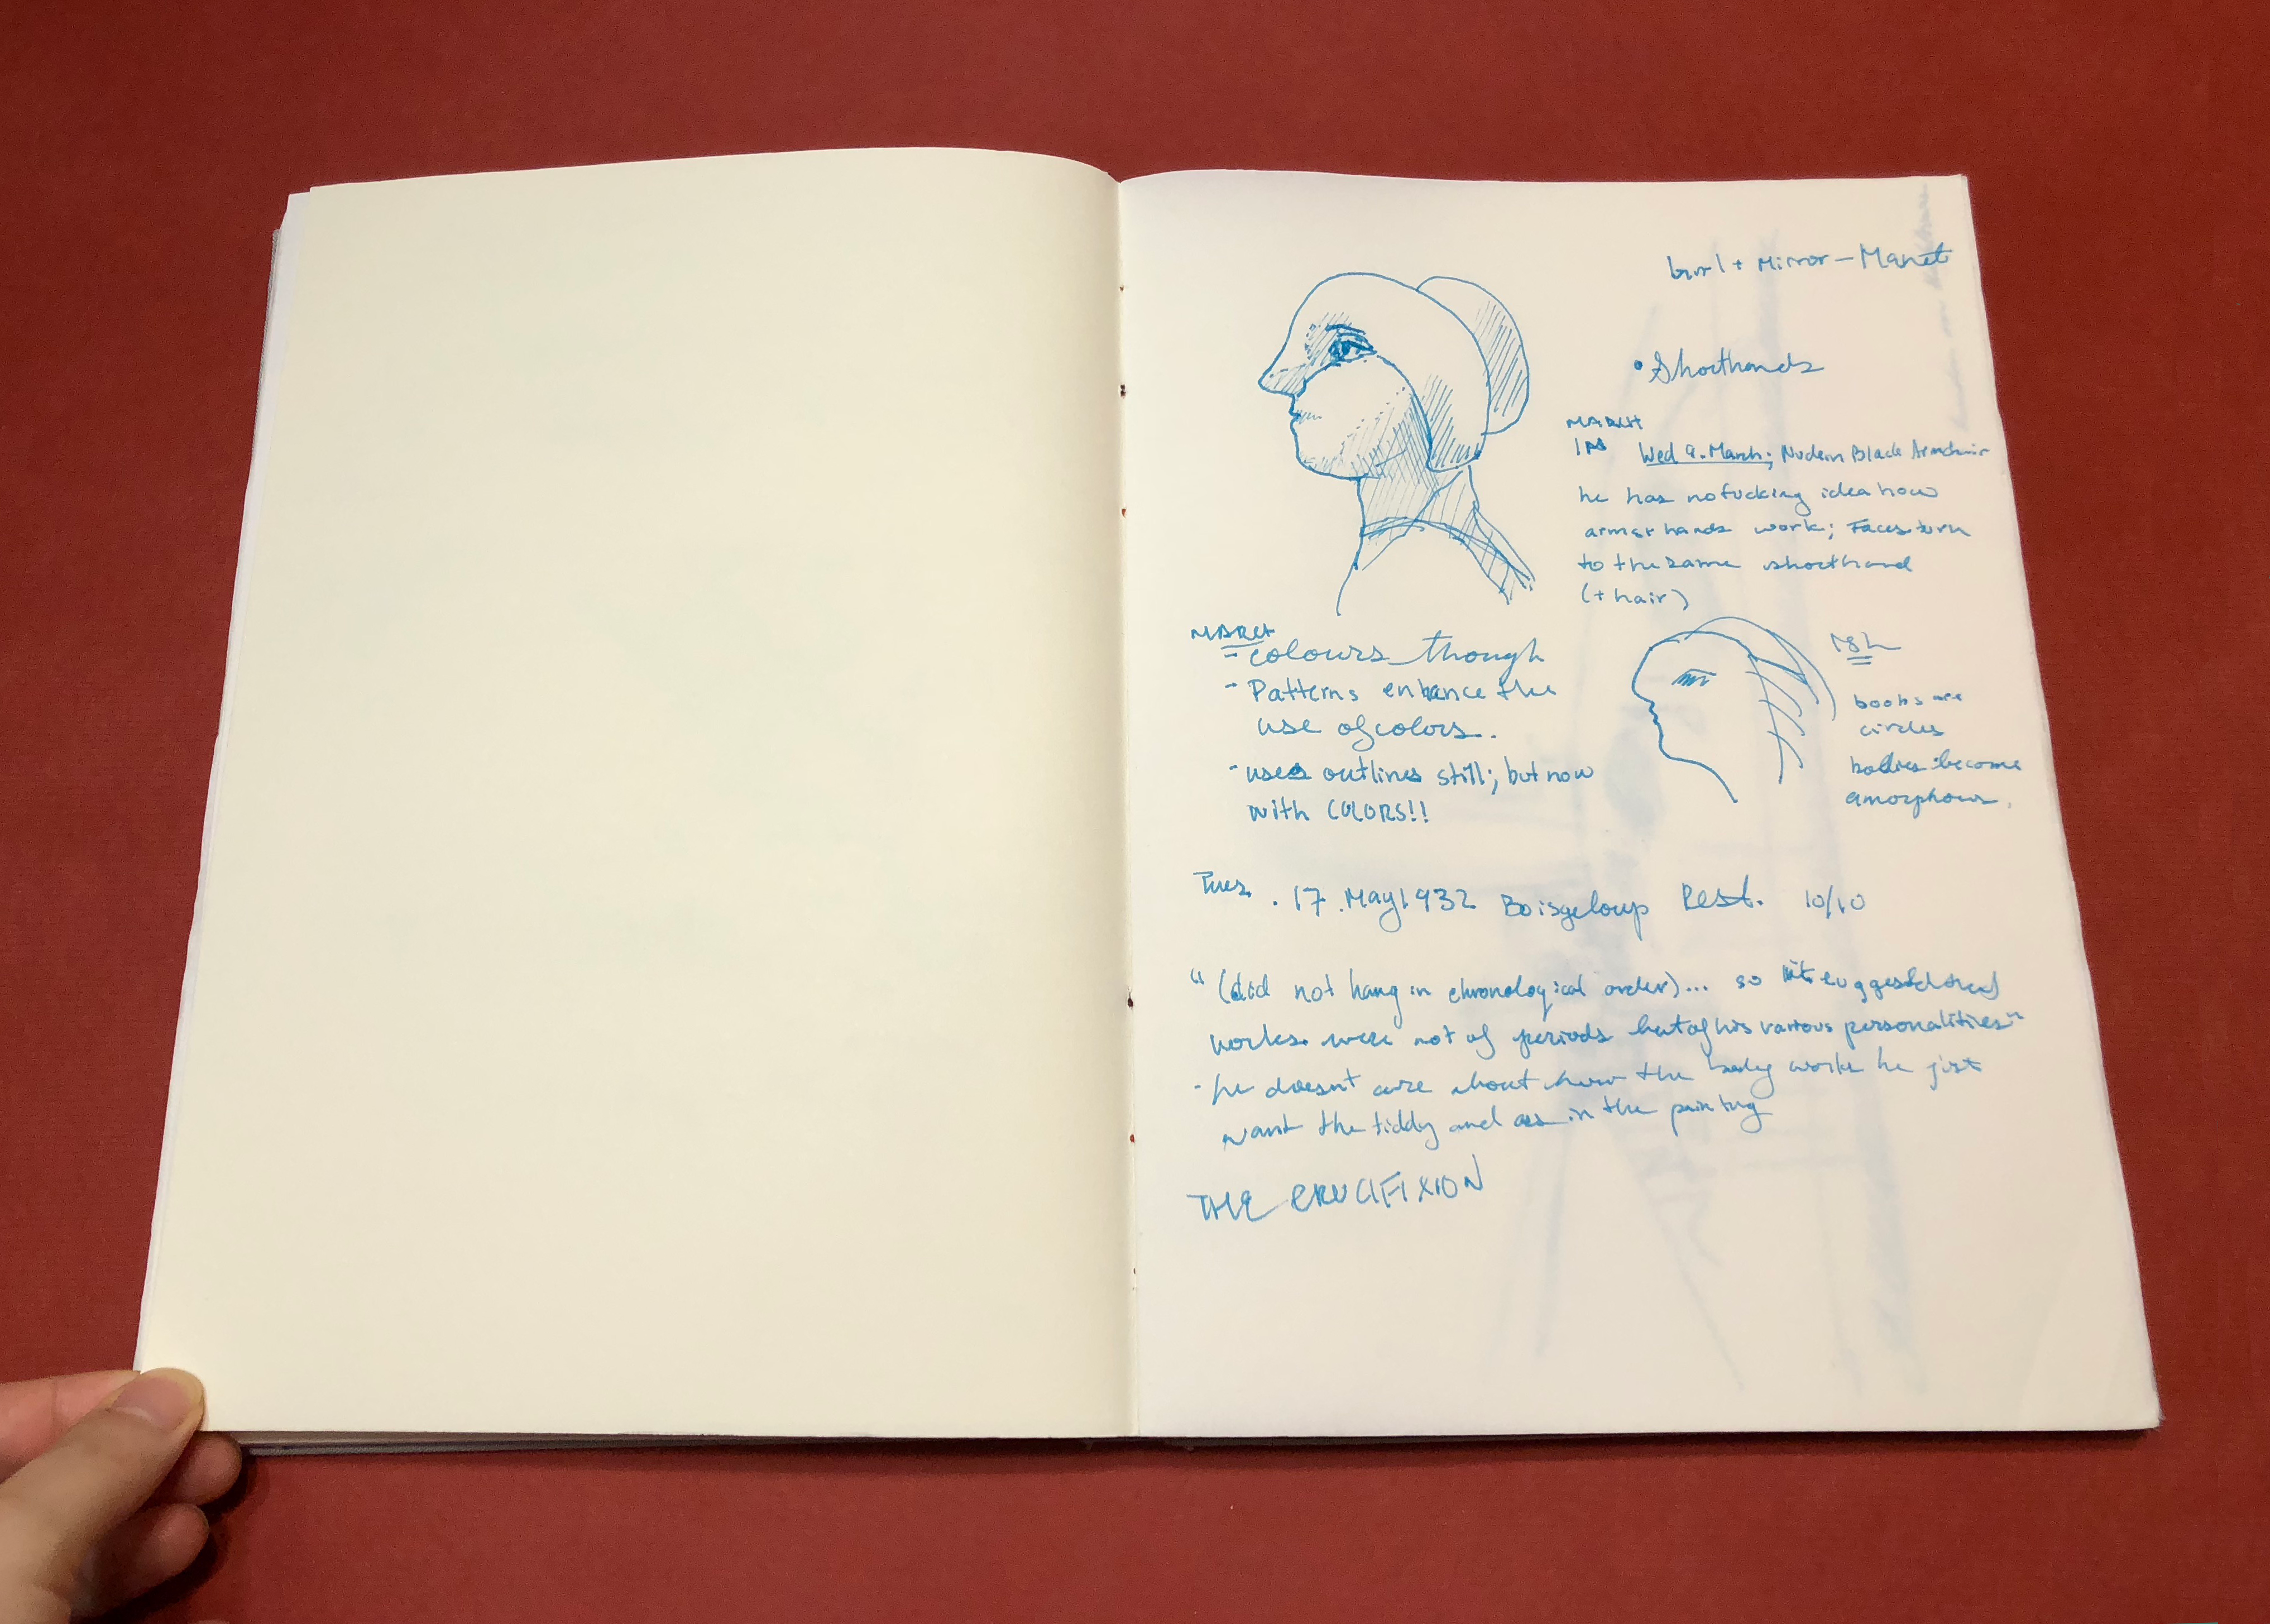 Girl + Mirror – Manet
• Shorthands
MARCH
Wed 9. March; Nude in Black Armchair
he has no fucking idea how
arms + hands work; Faces turn
to the same shorthand
(+ hair)
MARCH
- colours though
- Patterns enhance the
use of colors.
- uses outlines still; but now
with COLORS!!
boobs are
circles
bodies become
amorphous.
Tues. 17. May 1932 Boisgeloup Rest. 10/10
“(did not hang in chronological order)... so it suggested
works were not of periods but of his various personalities”
- he doesn't care about how the body works he just
want the tiddy and ass in the painting
THE CRUCIFIXION